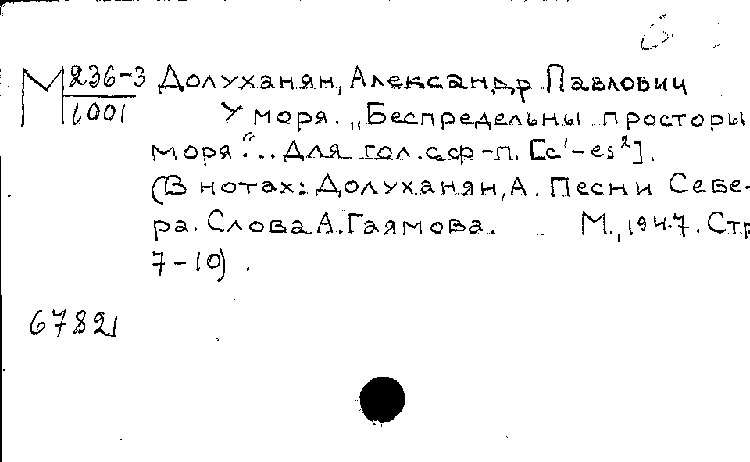 М 236-3 Долуханян, Александр Павлович
1001 У моря. „Беспредельны просторы
моря"... Для гол. с ф-п. [c¹-es²].
(В нотах: Долуханян, А. Песни Севе-
ра. Слова А. Гаямова. М., 1947. Стр
7-10).
67821